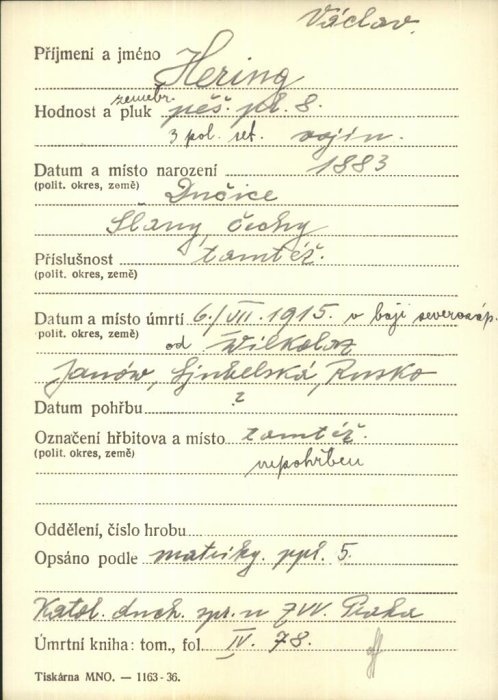 Václav.
Příjmení a jméno Hering
zeměbr.
Hodnost a pluk pěš. pl. 8.
3 pol. set. vojín.
Datum a místo narození 1883
(polit. okres, země) Drnčice
Slaný, Čechy
Příslušnost tamtéž.
(polit. okres, země)
Datum a místo úmrtí 6./VII. 1915. v boji severozáp.
(polit. okres, země) od Wilkolaz
Janów, Ljubelská, Rusko
Datum pohřbu ?
Označení hřbitova a místo tamtéž.
(polit. okres, země) nepohřben
Oddělení, číslo hrobu
Opsáno podle matriky. ppl. 5.
Katol. duch. spr. u ZVV. Praha
Úmrtní kniha: tom., fol. IV. 78.
Tiskárna MNO. — 1163-36.